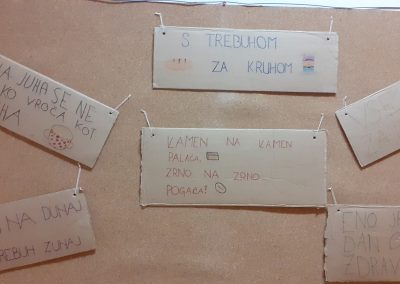 S TREBUHOM
ZA KRUHOM
JUHA SE NE
VROČA KOT
KAMEN NA KAMEN
PALAČA,
ZRNO NA ZRNO
POGAČA!
NA DUNAJ
ZUNAJ
ENO
DAN
ZDRAV